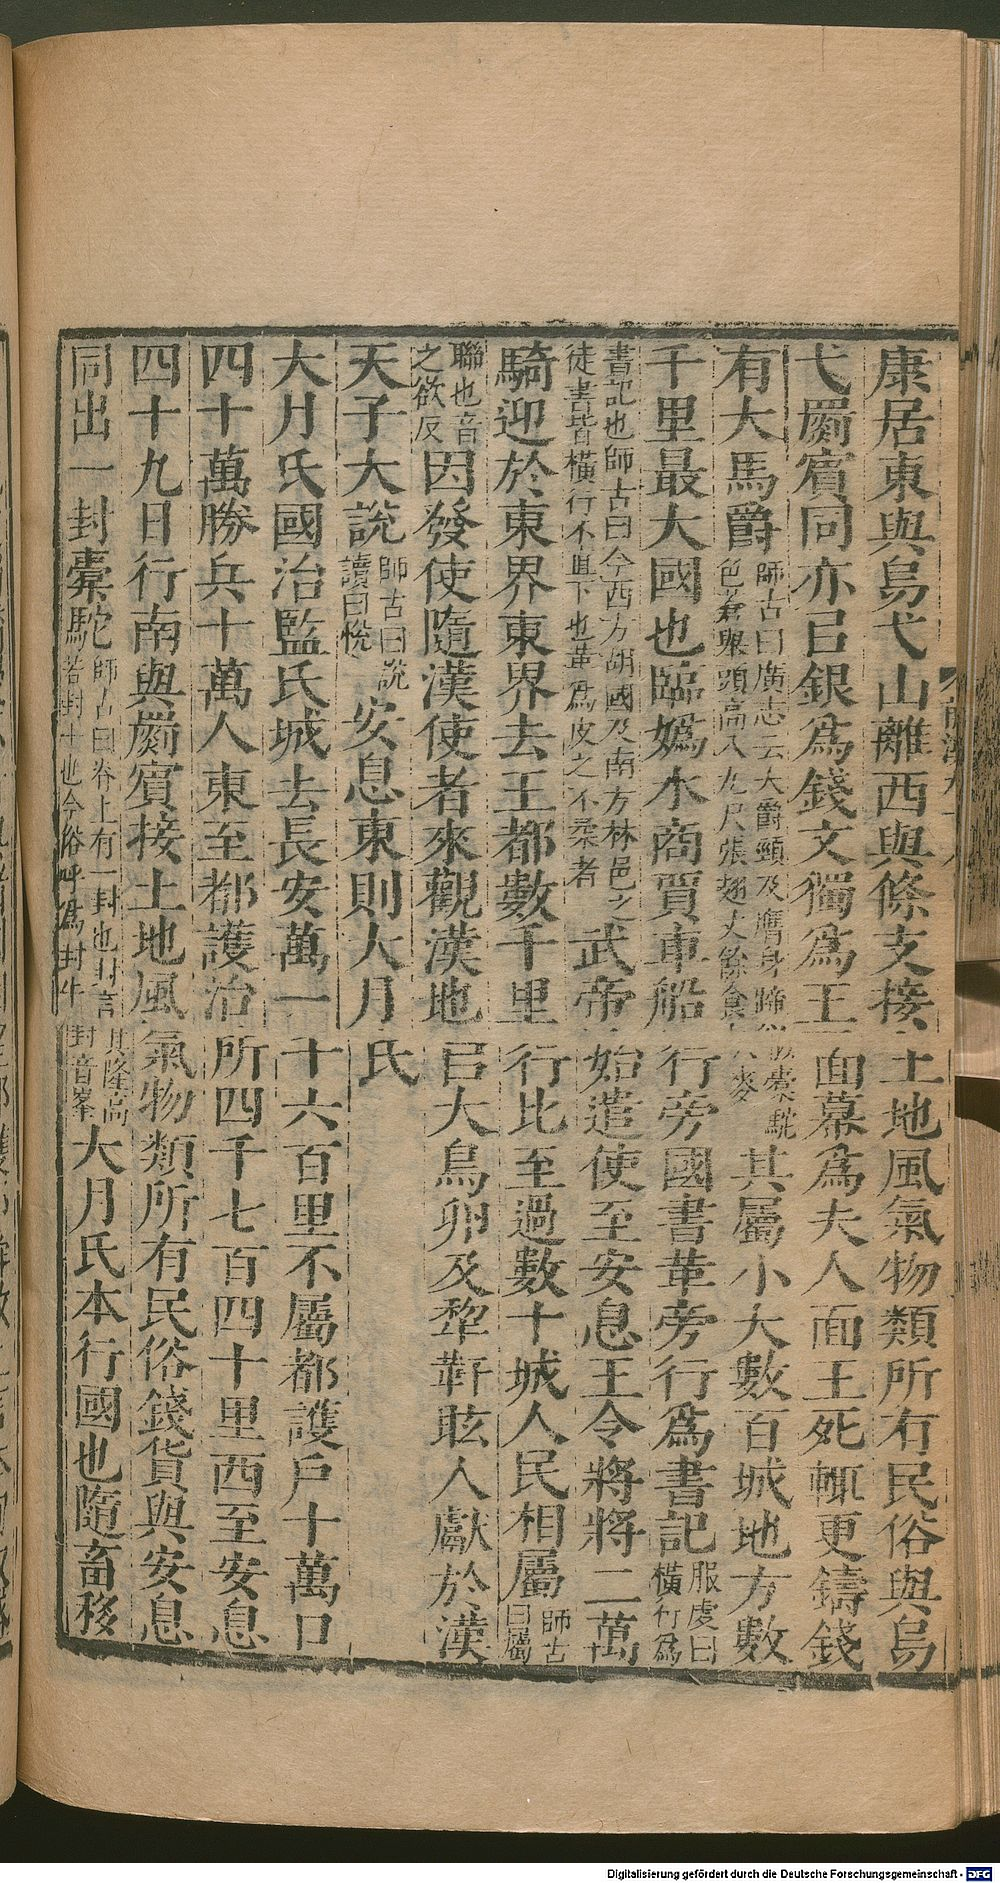 康居東與烏弋山離西與條支接土地風氣物類所有民俗與烏
弋罽賓同亦㠯銀爲錢文獨爲王面幕爲夫人面王死輒更鑄錢
有大馬爵師古曰廣志云大爵頸及膺身蹄橐駝色蒼舉頭高八九尺張翅丈餘食麥其屬小大數百城地方數
千里最大國也臨嬀水商賈車船行旁國書革旁行爲書記服虔曰橫行爲
書記也師古曰今西方胡國及南方林邑之徒書皆橫行不直下也革爲皮之不柔者武帝始遣使至安息王令將將二萬
騎迎於東界東界去王都數千里行比至過數十城人民相屬師古曰屬
聯也音之欲反因發使隨漢使者來觀漢地㠯大鳥卵及犂靬眩人獻於漢
天子大說師古曰說讀曰悅安息東則大月氏
大月氏國治監氏城去長安萬一千六百里不屬都護戶十萬口
四十萬勝兵十萬人東至都護治所四千七百四十里西至安息
四十九日行南與罽賓接土地風氣物類所有民俗錢貨與安息
同出一封橐駝師古曰脊上有一封也封言其隆高若封土也今俗呼爲封牛封音峯大月氏本行國也隨畜移
Digitalisierung gefördert durch die Deutsche Forschungsgemeinschaft - DFG